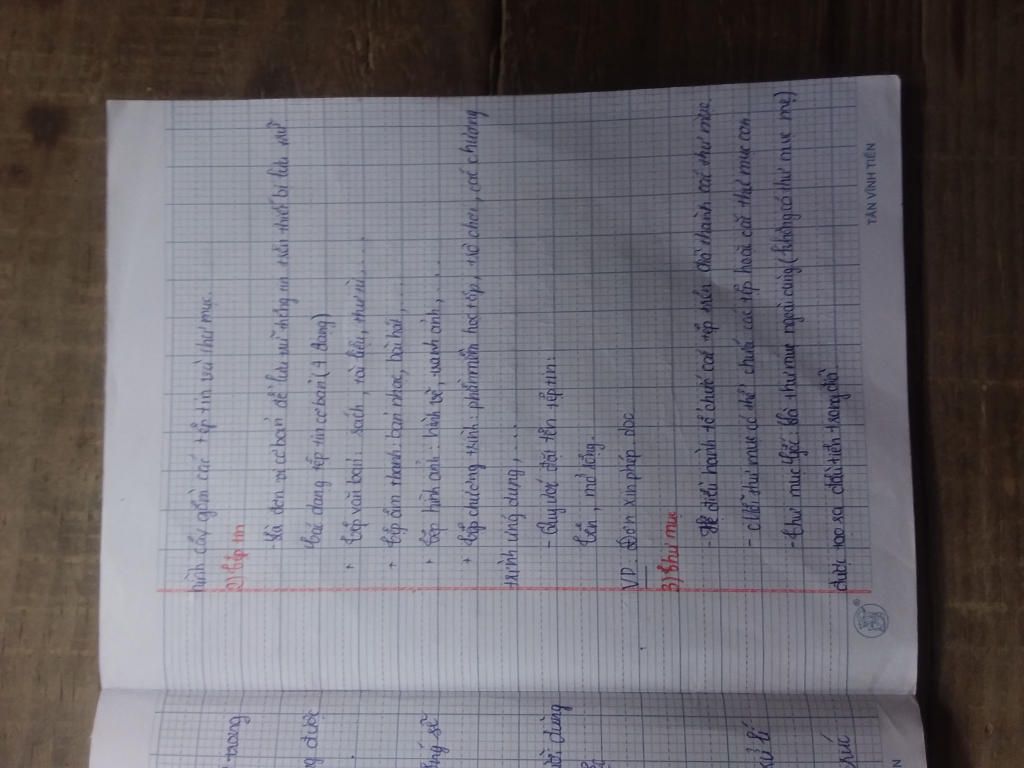 hình cây gồm các tệp tin và thư mục.
2) Tệp tin
- Là đơn vị cơ bản để lưu trữ thông tin trên thiết bị lưu trữ
Các dạng tệp tin cơ bản (4 dạng)
+ Tệp văn bản: sách, tài liệu, thư từ,....
+ Tệp âm thanh: bản nhạc, bài hát,....
+ Tệp hình ảnh: hình vẽ, tranh ảnh,....
+ Tệp chương trình: phần mềm học tập, trò chơi, các chương
trình ứng dụng,....
- Quy tắc đặt tên tệp tin:
Tên, mở rộng.
VD: Đơn xin phép. doc
3) Thư mục
- Hệ điều hành tổ chức các tệp trên đĩa thành các thư mục
- Mỗi thư mục có thể chứa các tệp hoặc các thư mục con
- Thư mục gốc: là thư mục ngoài cùng (không có thư mục mẹ)
được tạo ra đầu tiên trong đĩa.
TÂN VĨNH TIẾN
trong
được
dùng
xử lí